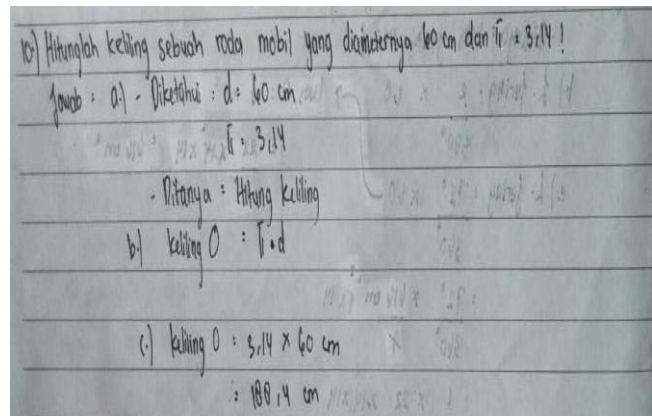 10.) Hitunglah keliling sebuah roda mobil yang diameternya 60 cm dan π = 3,14 !
Jawab : a.) - Diketahui : d : 60 cm
π : 3,14
- Ditanya : Hitung keliling
b.) keliling O : π . d
c.) keliling O : 3,14 x 60 cm
: 188,4 cm